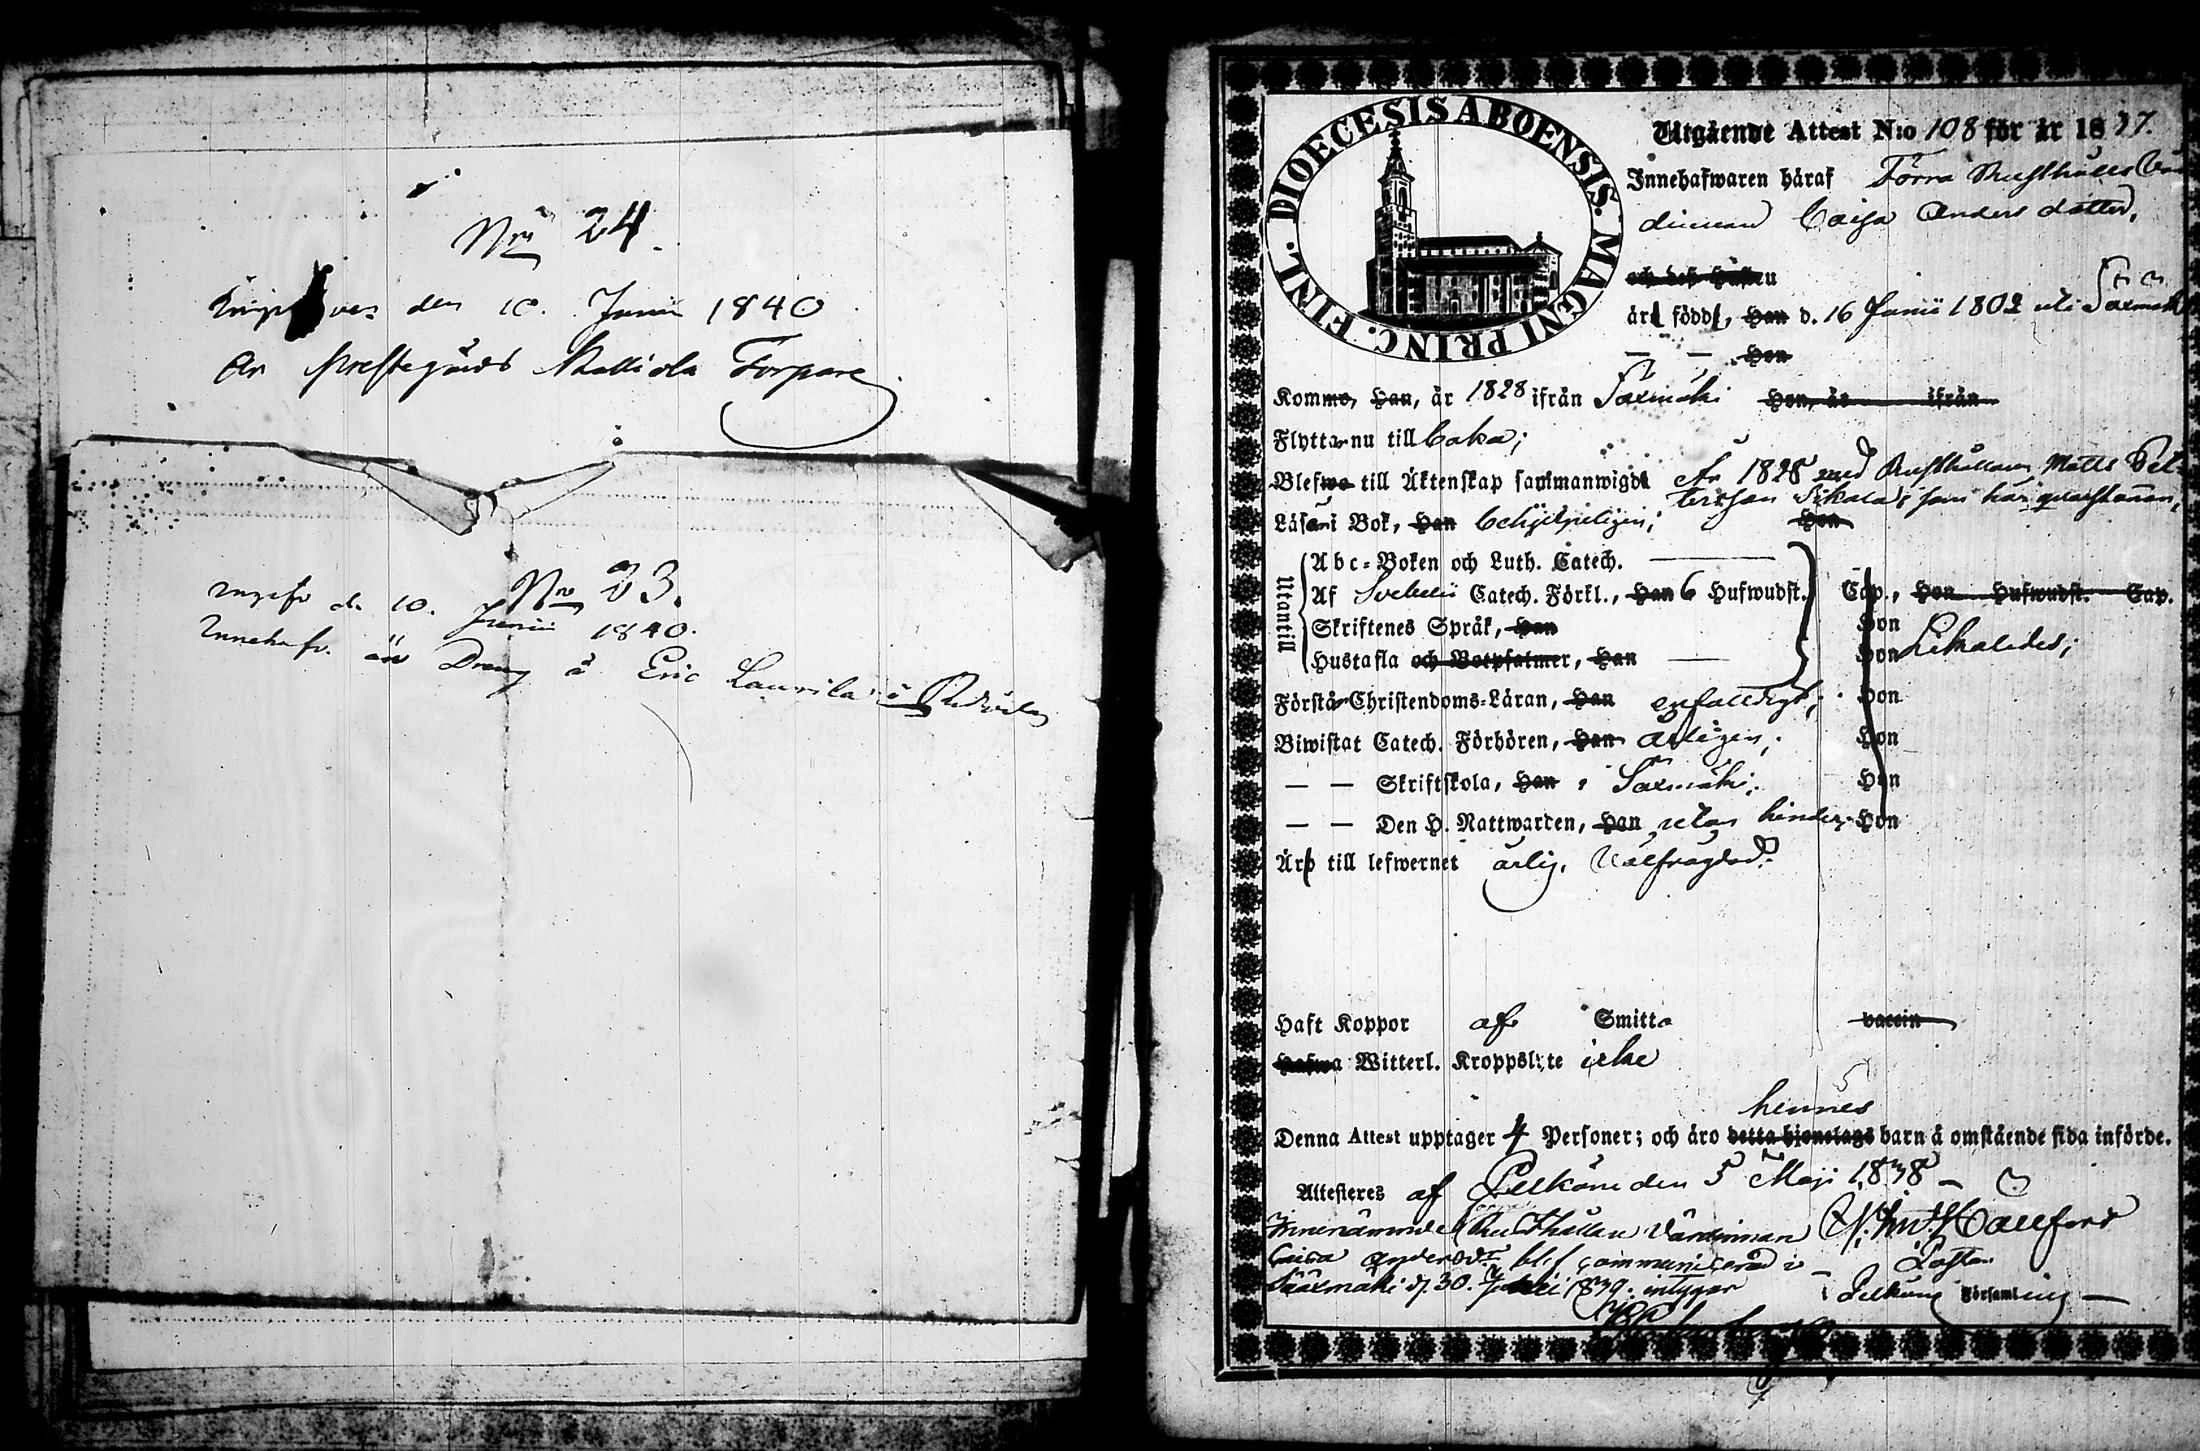 Nro 24.
den 10. Junii 1840
är Prestegårds Torpare
Nro 23.
d. 10. Junii 1840.
Innehafv. är Dräng å Eric Laurila i
DIOECESIS ABOENSIS. MAGNI PRINC. FINL.
Utgående Attest N:o 108 för år 1837.
Innehafwaren häraf Förra Rusthålls
Caisa Anders dotter,
och dess Hustru
äro födde, Han d. 16 Junii 1802 uti Säxmäki
— — Hon
Kommo, Han, år 1828 ifrån Säxmäki Hon, år ifrån
Flytta nu till
Blefwo till Äktenskap sammanwigde År 1828 med Rusthållaren Matts Pet-
tersson Sikala, som här qvarstannar,
Läsa i Bok, Han behjelpeligen; Hon
Utantill
Abc-Boken och Luth. Catech. ——
Af Svebelii Catech. Förkl., Han 6 Hufwudst. Cap., Hon Hufwudst. Cap.
Skriftenes Språk, Han Hon
Hustafla och Botpsalmer, Han — Hon Likaledes;
Förstå Christendoms-Läran, Han enfaldigt; Hon
Biwistat Catech. Förhören, Han årligen; Hon
— — Skriftskola, Han i Säxmäki; Hon
— — Den H. Nattwarden, Han utan hinder; Hon
Äro till lefwernet ärlig, Välfrägdad.
Haft Koppor af Smitta vaccin
Hafwa Witterl. Kroppslyte icke
hennes
Denna Attest upptager 4 Personer; och äro detta hjonelags barn å omstående sida införde.
Attesteres af Pelkäne den 5 Maji 1838
Innenämnde Rusthållare Värdinnan
Caisa Andersdr blef communicerad i Pastor
Sääxmäki d. 30. 1839. intygar i Pelkäne Församling